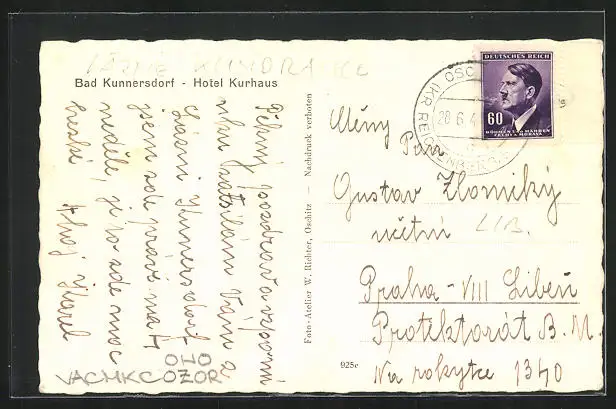 LÁZNĚ KUNDRATICE
Bad Kunnersdorf - Hotel Kurhaus
Pěkný pozdrav a vzpomín
ku zasílám Vám z
Lázní Kunersdorf
jsem zde právě na 4
neděle, je to zde moc
hezké
Ahoj Karel
OHO
VACMKCOZOR
Foto-Atelier W. Richter, Oschitz — Nachdruck verboten
925e
DEUTSCHES REICH
60
BÖHMEN U. MÄHREN
ČECHY A MORAVA
OSC
(KR REICHENBERG)
20.6.4
Pan
Gustav Zlomický
učetní LIB.
Praha - VIII Libeň
Protektorát B. M.
Na rokytce 1340